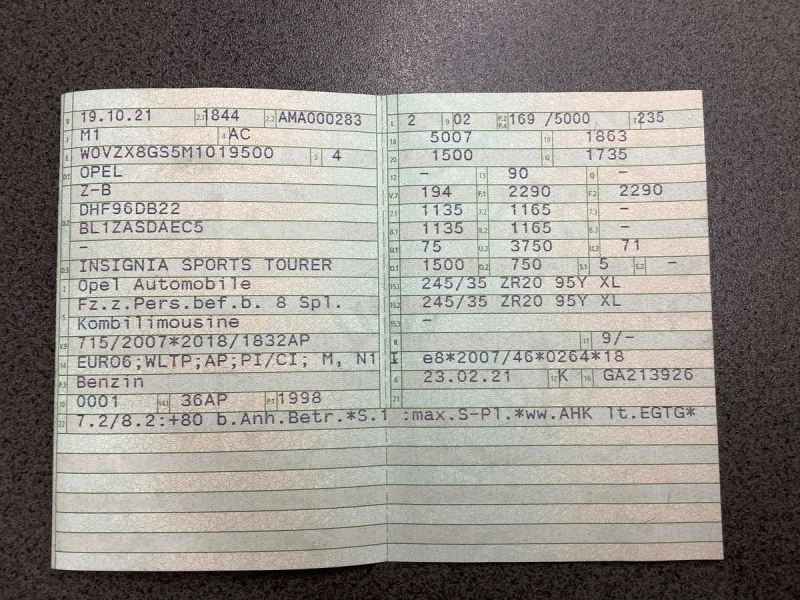 B 19.10.21 2.1 1844 2.2 AMA000283
J M1 4 AC
E W0VZX8GS5M1019500 3 4
D.1 OPEL
Z-B
D.2 DHF96DB22
BL1ZASDAEC5
–
D.3 INSIGNIA SPORTS TOURER
2 Opel Automobile
5 Fz.z.Pers.bef.b. 8 Spl.
Kombilimousine
V.9 715/2007*2018/1832AP
14 EURO6;WLTP;AP;PI/CI; M, N1 I
P.3 Benzin
10 0001 14.1 36AP P.1 1998
22 7.2/8.2:+80 b.Anh.Betr.*S.1 :max.S-Pl.*ww.AHK lt.EGTG*
L 2 9 02 P.2 P.4 169 /5000 T 235
18 5007 19 1863
20 1500 G 1735
12 – 13 90 Q –
V.7 194 F.1 2290 F.2 2290
7.1 1135 7.2 1165 7.3 –
8.1 1135 8.2 1165 8.3 –
U.1 75 U.2 3750 U.3 71
O.1 1500 O.2 750 S.1 5 S.2 –
15.1 245/35 ZR20 95Y XL
15.2 245/35 ZR20 95Y XL
15.3 –
R 11 9/–
e8*2007/46*0264*18
6 23.02.21 17 K 16 GA213926
21